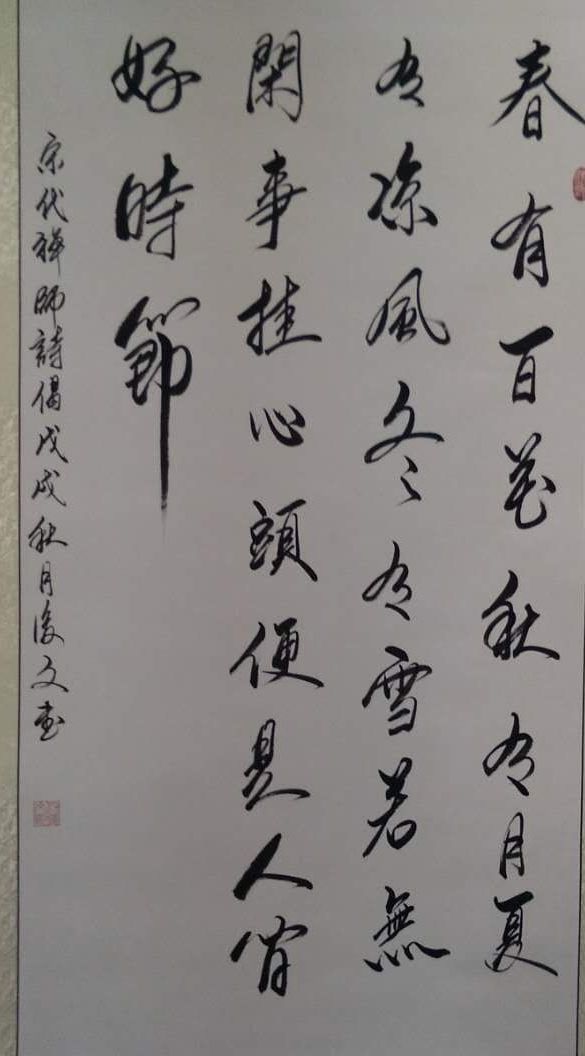 春有百花秋有月夏
有涼風冬有雪若無
閑事挂心頭便是人間
好時節
宋代禪師詩偈戊戌秋月俊文書